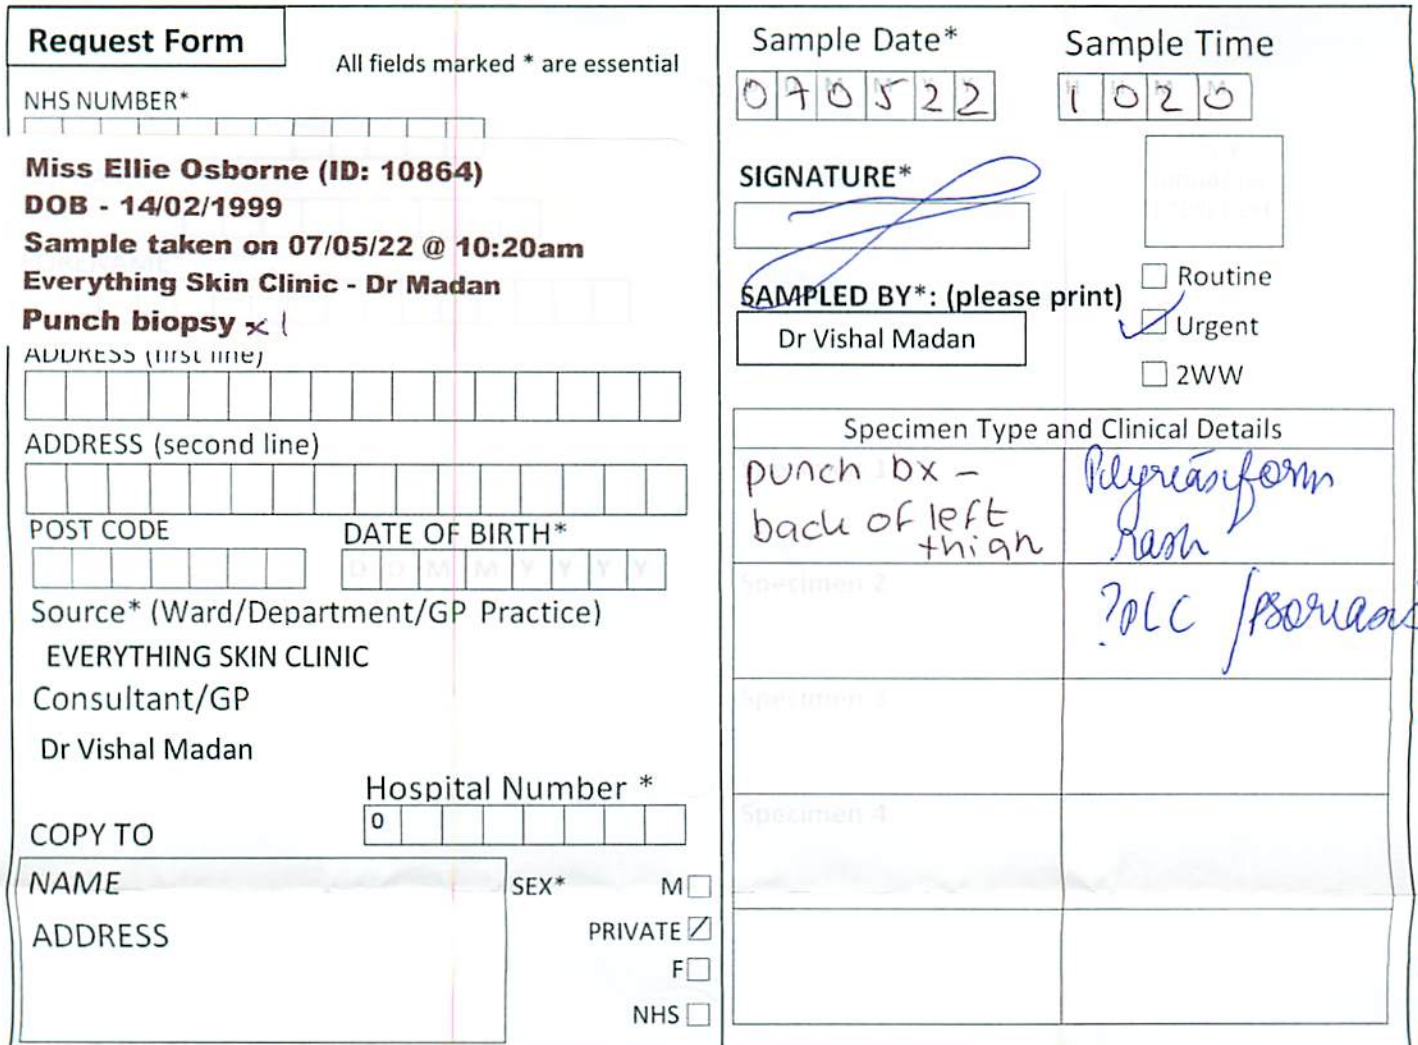 Request Form
All fields marked * are essential
NHS NUMBER*
Miss Ellie Osborne (ID: 10864)
DOB - 14/02/1999
Sample taken on 07/05/22 @ 10:20am
Everything Skin Clinic - Dr Madan
Punch biopsy x 1
ADDRESS (first line)
ADDRESS (second line)
POST CODE
DATE OF BIRTH*
D D M M Y Y Y Y
Source* (Ward/Department/GP Practice)
EVERYTHING SKIN CLINIC
Consultant/GP
Dr Vishal Madan
Hospital Number *
0
COPY TO
NAME
ADDRESS
SEX*
M
PRIVATE
F
NHS
Sample Date*
070522
Sample Time
1020
SIGNATURE*
SAMPLED BY*: (please print)
Dr Vishal Madan
Routine
Urgent
2WW
Specimen Type and Clinical Details
punch bx -
back of left
thigh
rash
Specimen 2
?PLC / Psoriasis
Specimen 3
Specimen 4